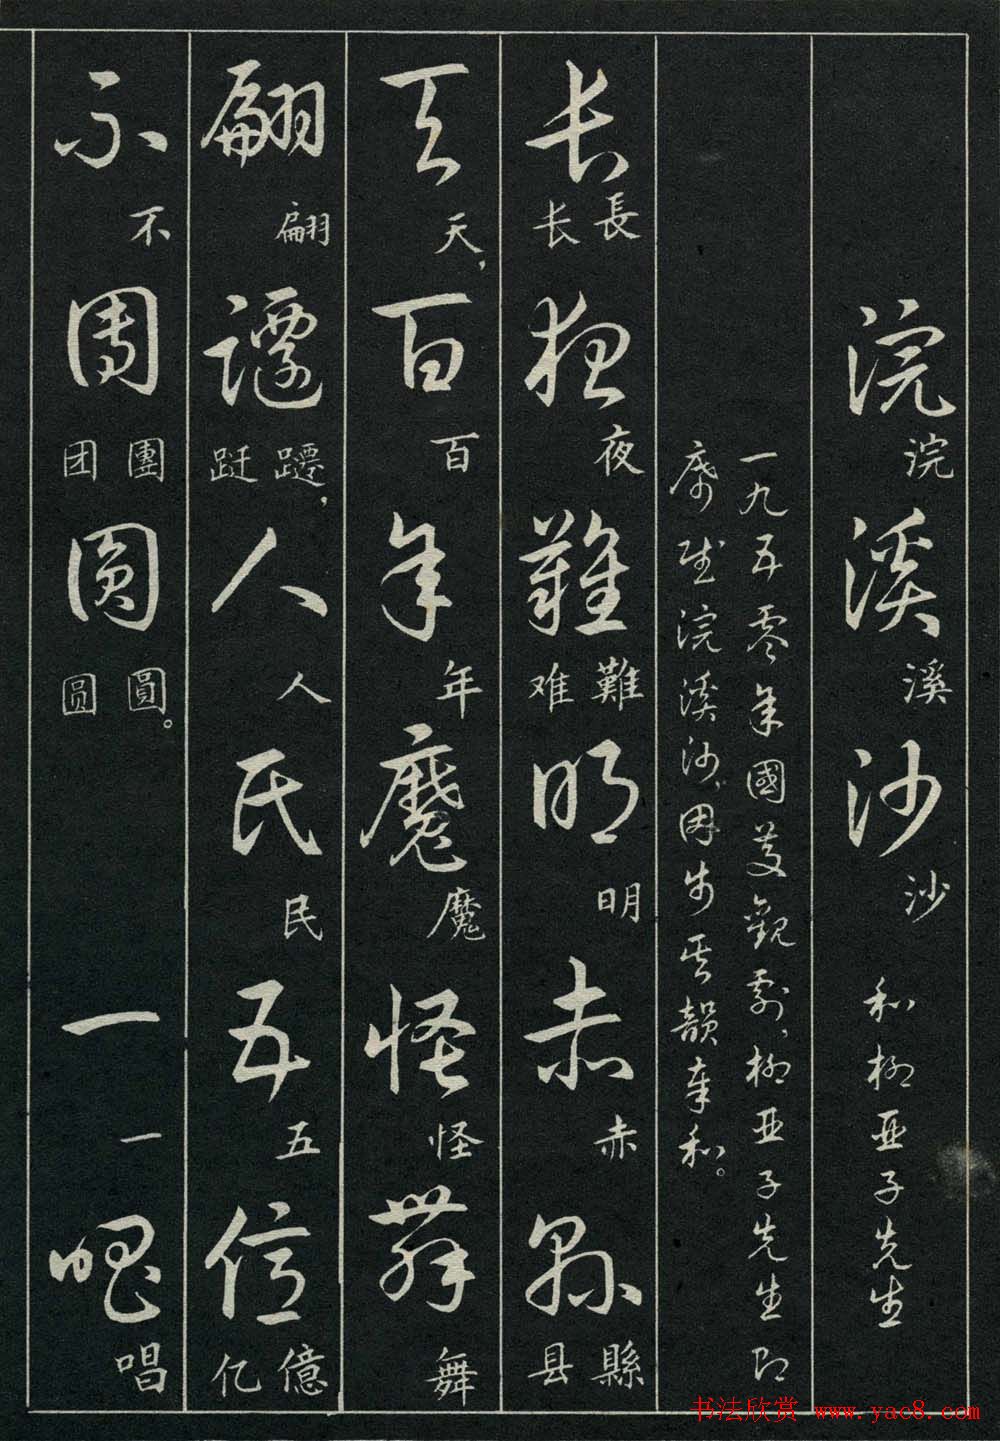 浣浣溪溪沙沙 和柳亞子先生
一九五零年國慶觀劇，柳亞子先生即
席賦浣溪沙，因步其韻奉和。
長長长夜夜難難难明明赤赤縣縣县
天天，百百年年魔魔怪怪舞舞
翩翩躚躚，跹人人民民五五億億亿
不不團團团圓圓。圆一一唱唱
书法欣赏 www.yac8.com